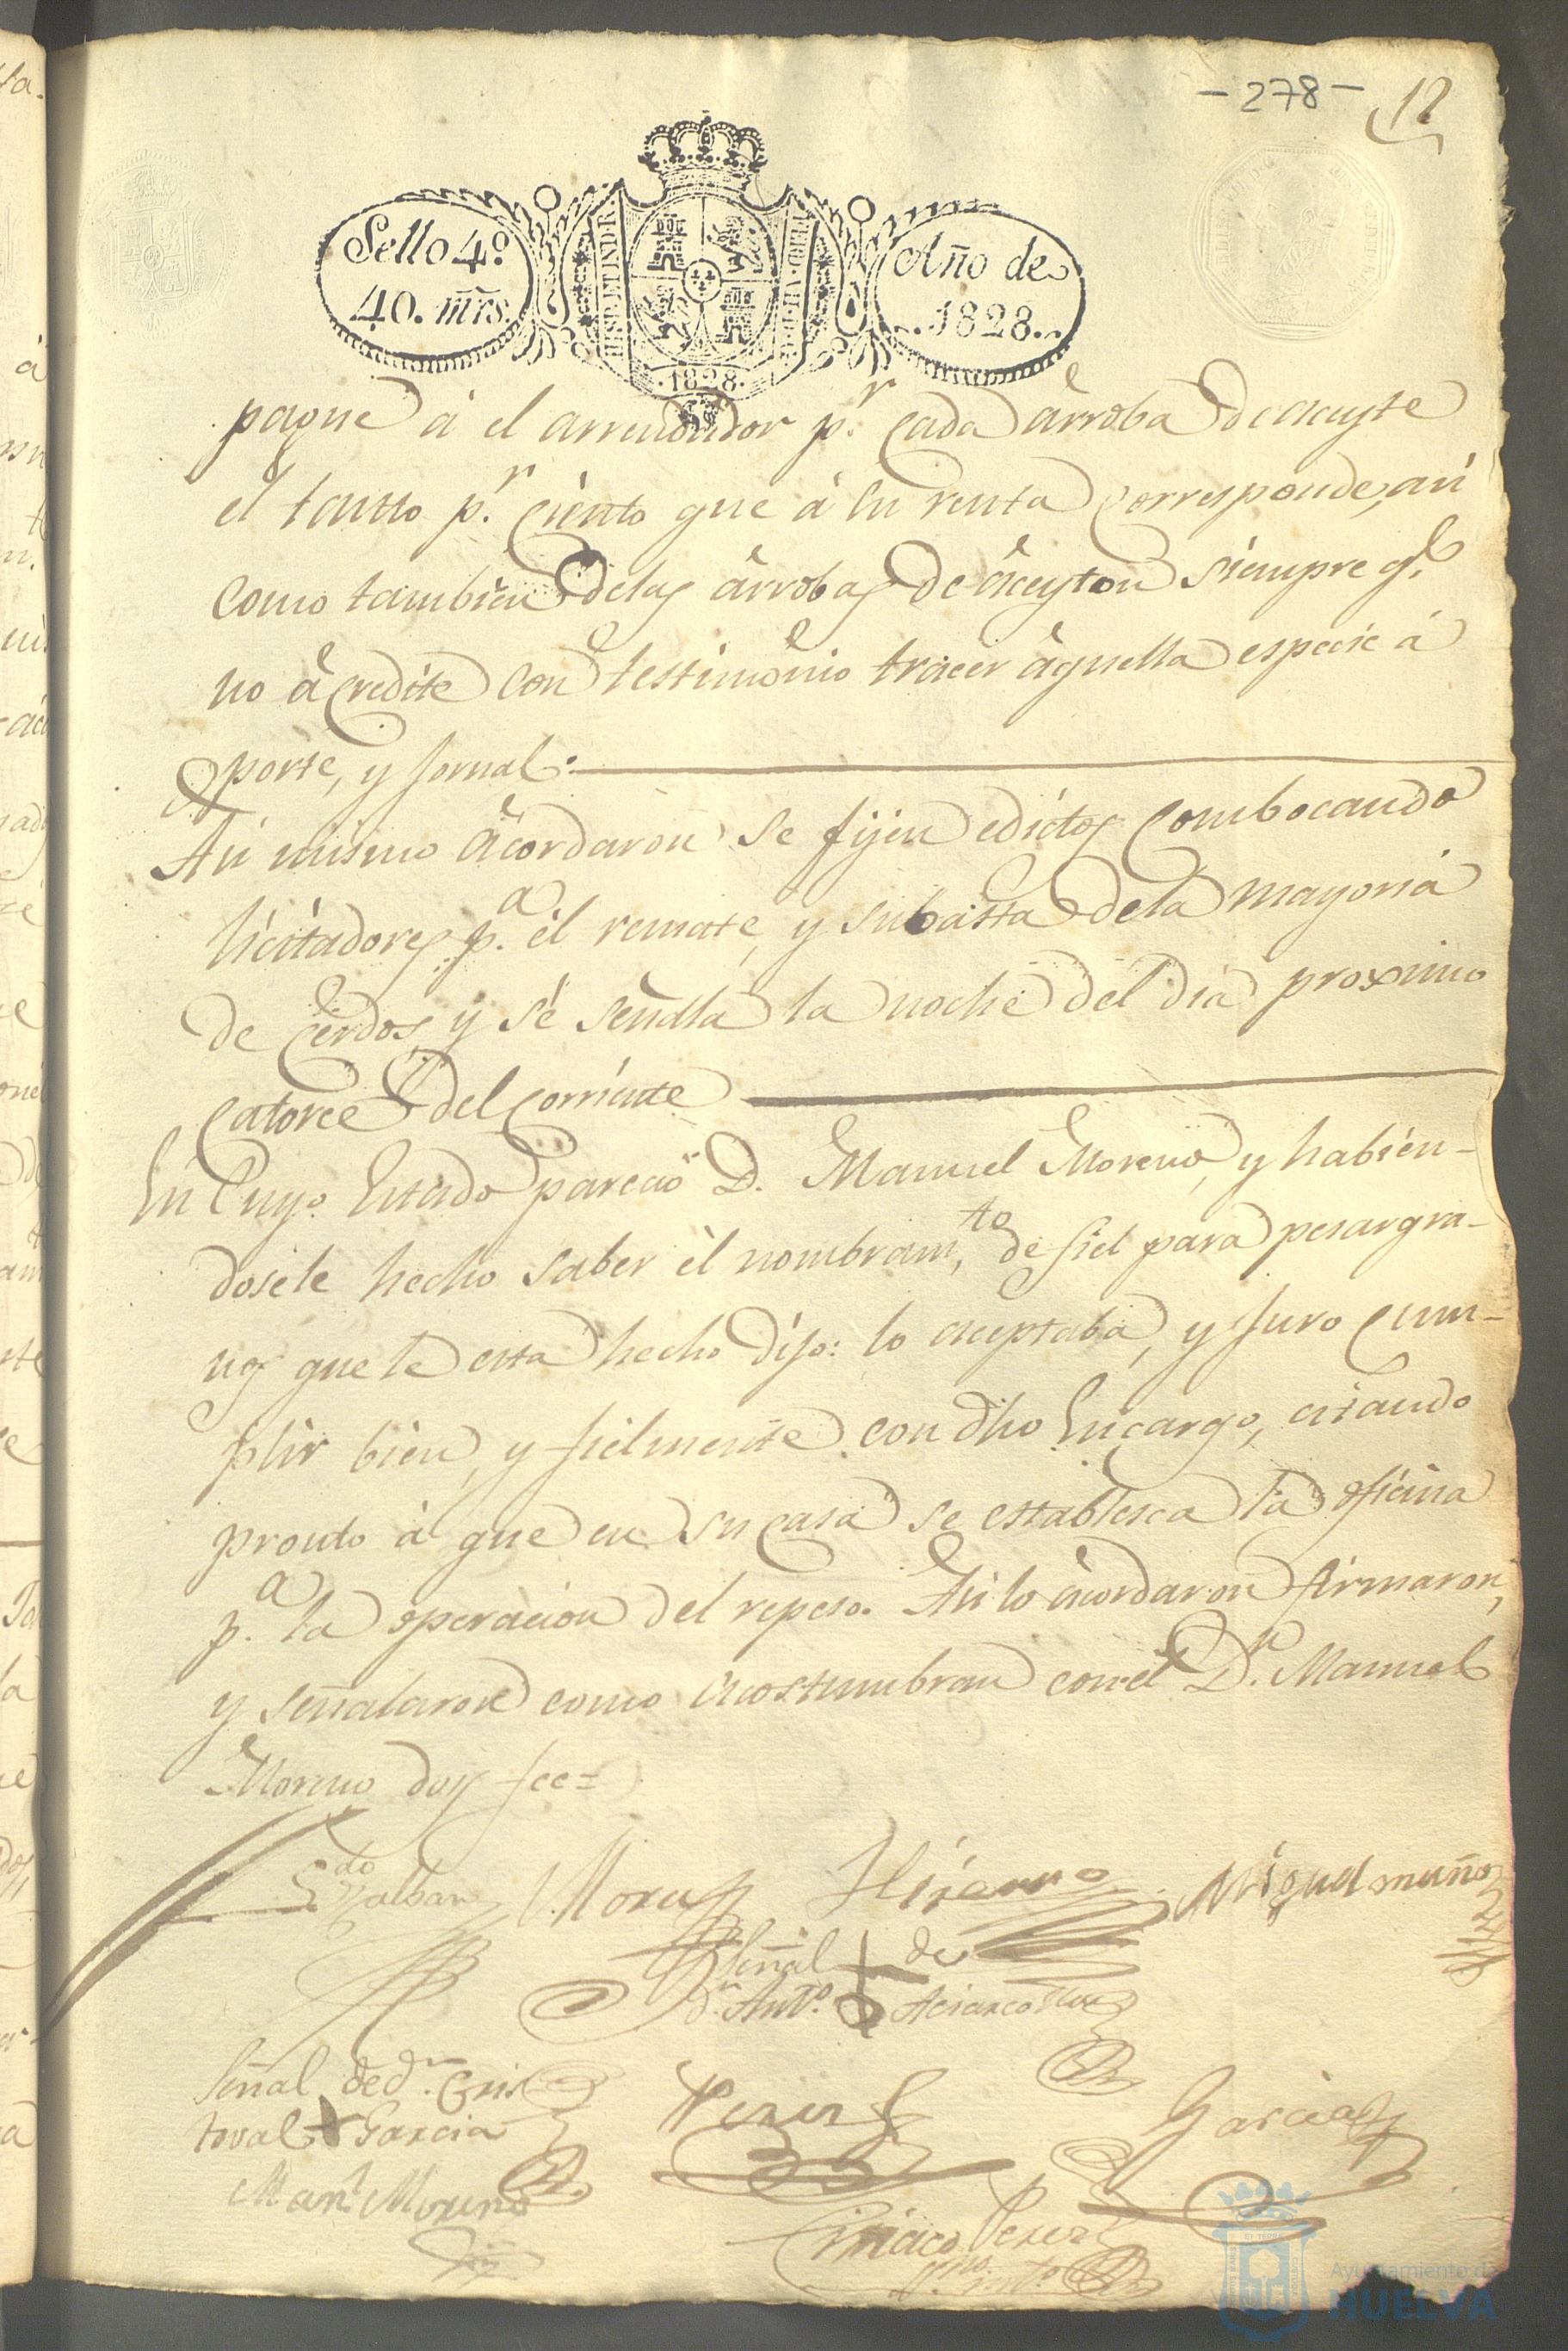 -278- 12
Sello 4º
40. mrs.
HISP. ET IND. R.
1828.
Año de
1828.
pague á el arrendador p.r cada arroba de aceyte
el tantto p.r ciento que á su renta corresponde, asi
como tambien delas arrobas de aceyton siempre q.e
no acredite con testimonio traer aquella especie á
porte, y jornal:
Asi mismo acordaron se fijen edictos combocando
licitadores p.a el remate, y subastta dela mayoria
de cerdos, y se señala la noche del dia proximo
catorce del corriente
En cuyo estado parecio D. Manuel Moreno, y habien-
dosele hecho saber el nombram.to de fiel para pesar gra-
nos que le esta hecho dijo: lo aceptaba, y juro cum-
plir bien, y fielmente con dho encargo, estando
pronto á que en su casa se establesca la oficina
p.a la operacion del repeso. Asi lo acordaron firmaron,
y señalaron como acostumbran con el D.n Manuel
Moreno doy fee=
Mora Miguel muños
Señal de
d.n Ant.o
Señal de d.n Cris
toval Garcia
Perez Garcia
Man.l Moreno
Ciriaco Perez
Ayuntamiento de
HUELVA